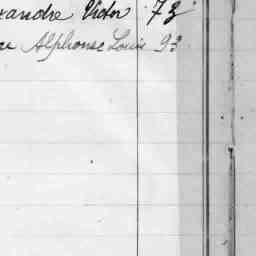 xandre Victor 73
Alphonse Louis 93